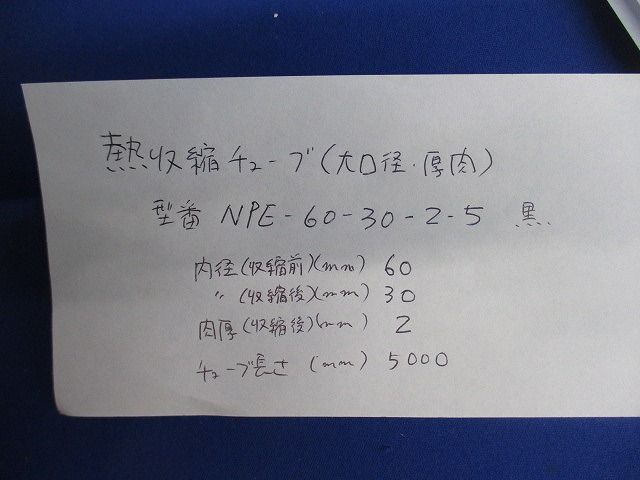 熱収縮チューブ(大口径・厚肉)
型番 NPE-60-30-2-5 黒
内径(収縮前)(mm) 60
〃 (収縮後)(mm) 30
肉厚(収縮後)(mm) 2
チューブ長さ (mm) 5000